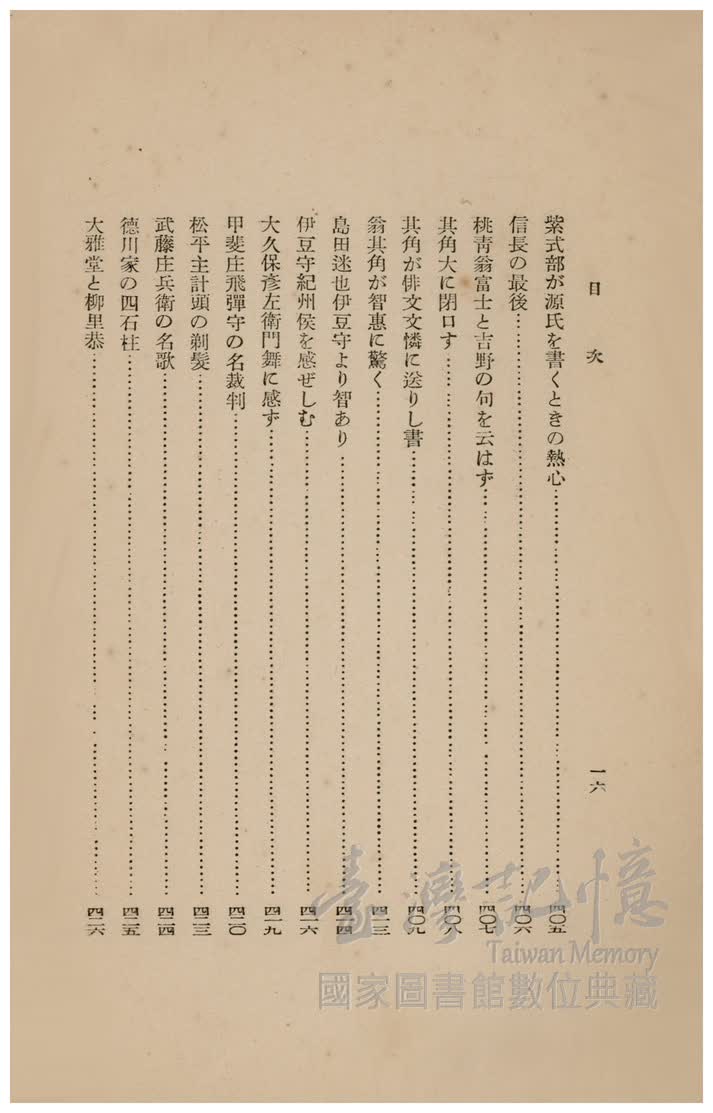 目次
一六
紫式部が源氏を書くときの熱心…………四〇五
信長の最後…………四〇六
桃青翁富士と吉野の句を云はず…………四〇七
其角大に閉口す…………四〇八
其角が俳文文憐に送りし書…………四〇九
翁其角が智惠に驚く…………四一三
島田迷也伊豆守より智あり…………四一四
伊豆守紀州侯を感ぜしむ…………四一六
大久保彦左衛門舞に感ず…………四一九
甲斐庄飛彈守の名裁判…………四二〇
松平主計頭の剃髮…………四二三
武藤庄兵衛の名歌…………四二四
德川家の四石柱…………四二五
大雅堂と柳里恭…………四二六
臺灣記憶
Taiwan Memory
國家圖書館數位典藏